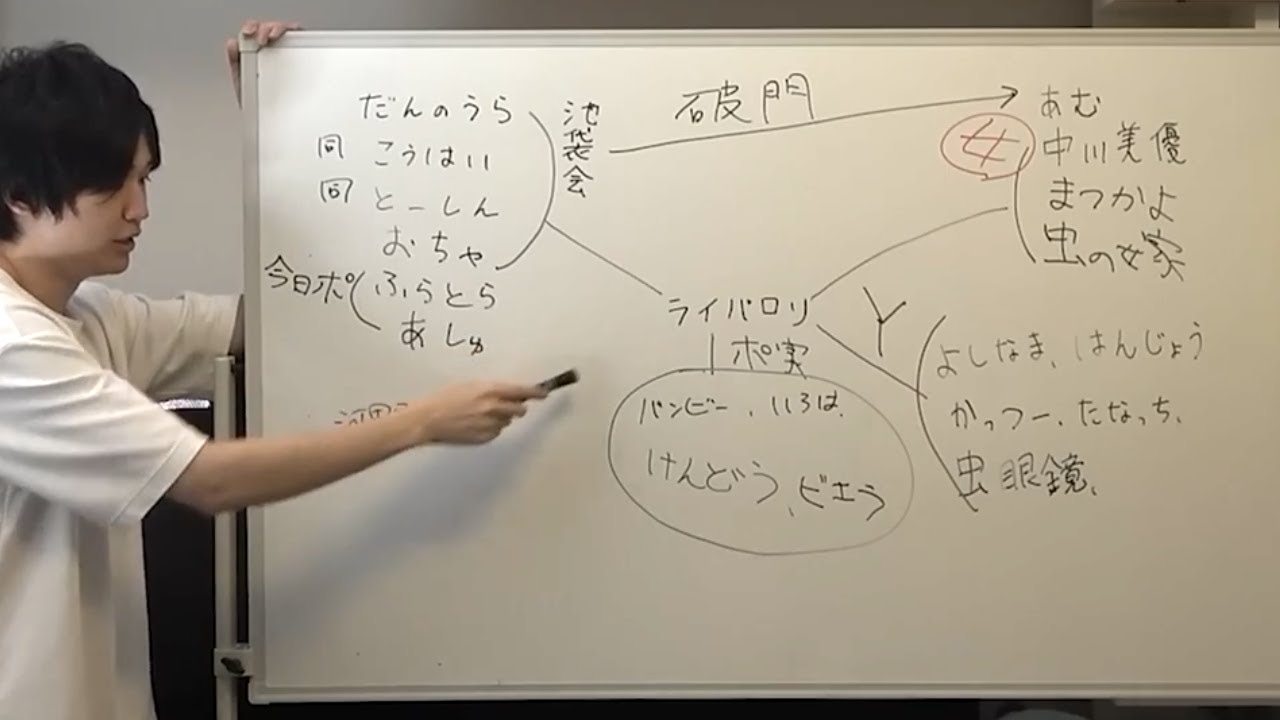 だんのうら
こうはい
とーしん
おちゃ
今日ポ
ふらとら
あしゅ
池袋会
破門
女
あむ
中川美優
まつかよ
虫の女家
ライバロリ
ポ実
バンビー、いろは、
けんどう、ビエラ
Y
よしなま、はんじょう
かっつー、たなっち、
虫眼鏡、